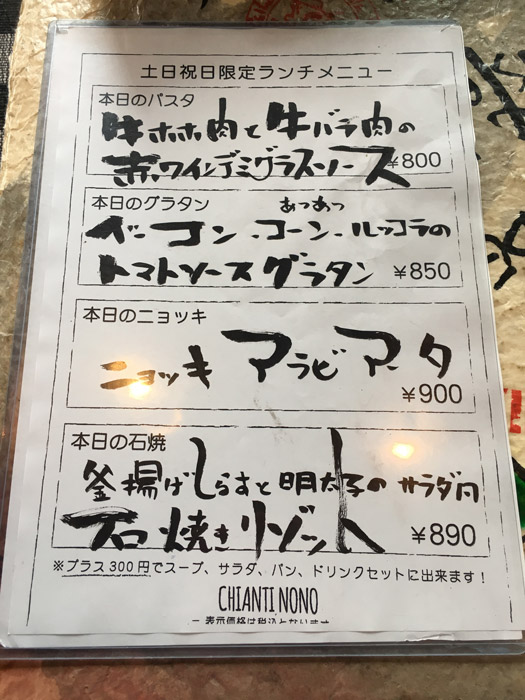 土日祝日限定ランチメニュー
本日のパスタ
牛ホホ肉と牛バラ肉の
赤ワインデミグラスソース ¥800
本日のグラタン
あつあつ
ベーコン、コーン、ルッコラの
トマトソースグラタン ¥850
本日のニョッキ
ニョッキ アラビアータ
¥900
本日の石焼
釜揚げしらすと明太子のサラダ風
石焼きリゾット ¥890
※プラス300円でスープ、サラダ、パン、ドリンクセットに出来ます!
CHIANTI NONO
表示価格は税込となります